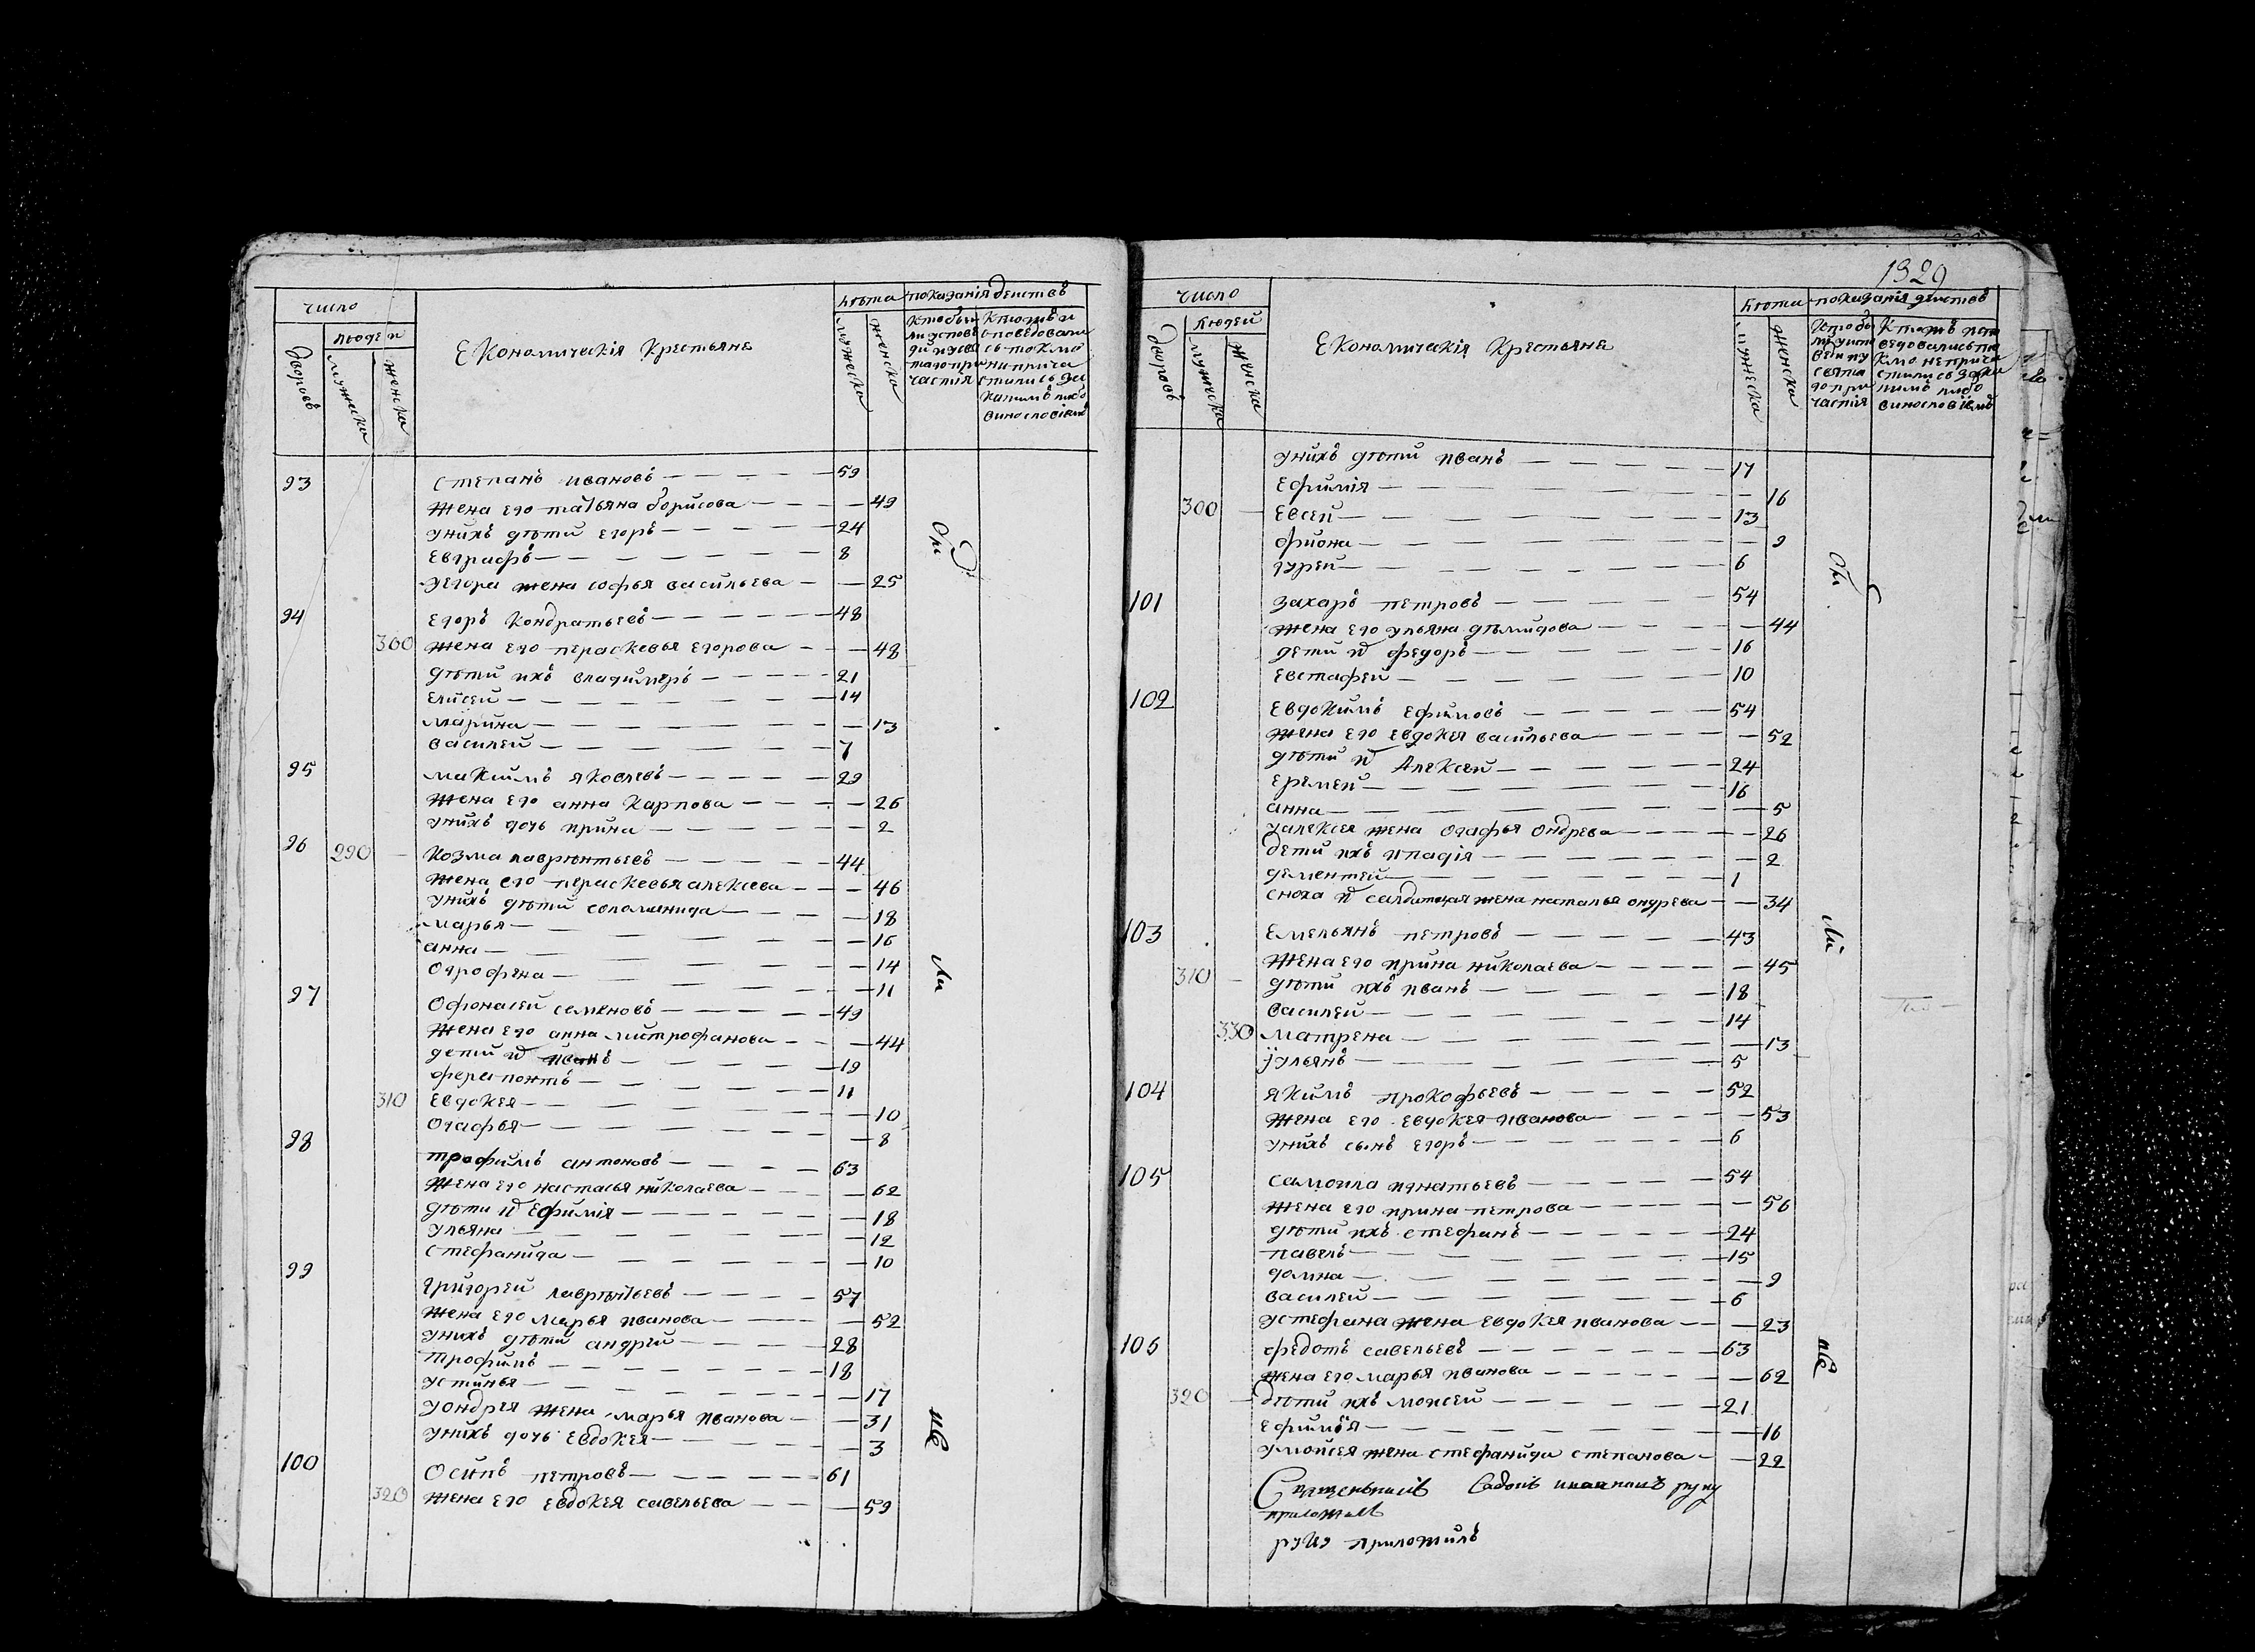 число
людей
дворовъ
мужеска
женска
Економическія Крестьяне
лѣта
мужеска
женска
показанія действъ
Кто был
ли у испове
ди и у свя
таго при
частія
Кто и
споведовали
сь токмо
не прича
стились за
какимъ либо
винословіемъ
93 степанъ ивановъ 59
жена его татьяна борисова 49
у нихъ дѣти егоръ 24
евграфъ 8
у егора жена софья васильева 25
94 егоръ кондратьевъ 48
300 жена его пераскевья егорова 48
дѣти ихъ владимеръ 21
елисей 14
марина 13
василей 7
95 максимъ яковлевъ 29
жена его анна карпова 26
у нихъ дочь ирина 2
96 290 козма лаврентьевъ 44
жена его пераскевья алексеева 46
у нихъ дѣти соломанида 18
марья 16
анна 14
огрофена 11
97 офонасей семеновъ 49
жена его анна митрофанова 44
дети и иванъ 19
ферапонтъ 11
310 евдокея 10
огафья 8
98 трофимъ антоновъ 63
жена его настасья николаева 62
дѣти и ефимія 18
ульяна 12
стефанида 10
99 григорей лаврентьевъ 57
жена его марья иванова 52
у нихъ дѣти андрей 28
трофимъ 18
устинья 17
у ондрея жена марья иванова 31
у нихъ дочь евдокея 3
100 осипъ петровъ 61
320 жена его евдокея савельева 59
1329
число
людей
дворовъ
мужеска
женска
Економическія Крестьяне
лѣта
мужеска
женска
показанія действъ
у нихъ дѣти иванъ 17
ефимія 16
300 евсей 13
фиона 9
гурей 6
101 захаръ петровъ 54
жена его ульяна дѣмидова 44
дети и федоръ 16
евстафей 10
102 евдокимъ ефимовъ 54
жена его евдокея васильева 52
дѣти и Алексей 24
еремей 16
анна 5
у алексея жена огафья ондрева 26
дети ихъ ипадія 2
дементей 1
сноха и салдатцкая жена наталья ондрева 34
103 емельянъ петровъ 43
жена его ирина николаева 45
310 дѣти ихъ иванъ 18
василей 14
330 матрена 13
ульянъ 5
104 якимъ прокофьевъ 52
жена его евдокея иванова 53
у нихъ сынъ егоръ 6
105 самоила игнатьевъ 54
жена его ирина петрова 56
дѣти ихъ стефанъ 24
павелъ 15
домна 9
василей 6
у стефана жена евдокея иванова 23
106 федотъ савельевъ 63
жена его марья иванова 62
320 дѣти ихъ моисей 21
ефимія 16
у моисея жена стефанида степанова 22
руку
приложилъ
руку приложилъ